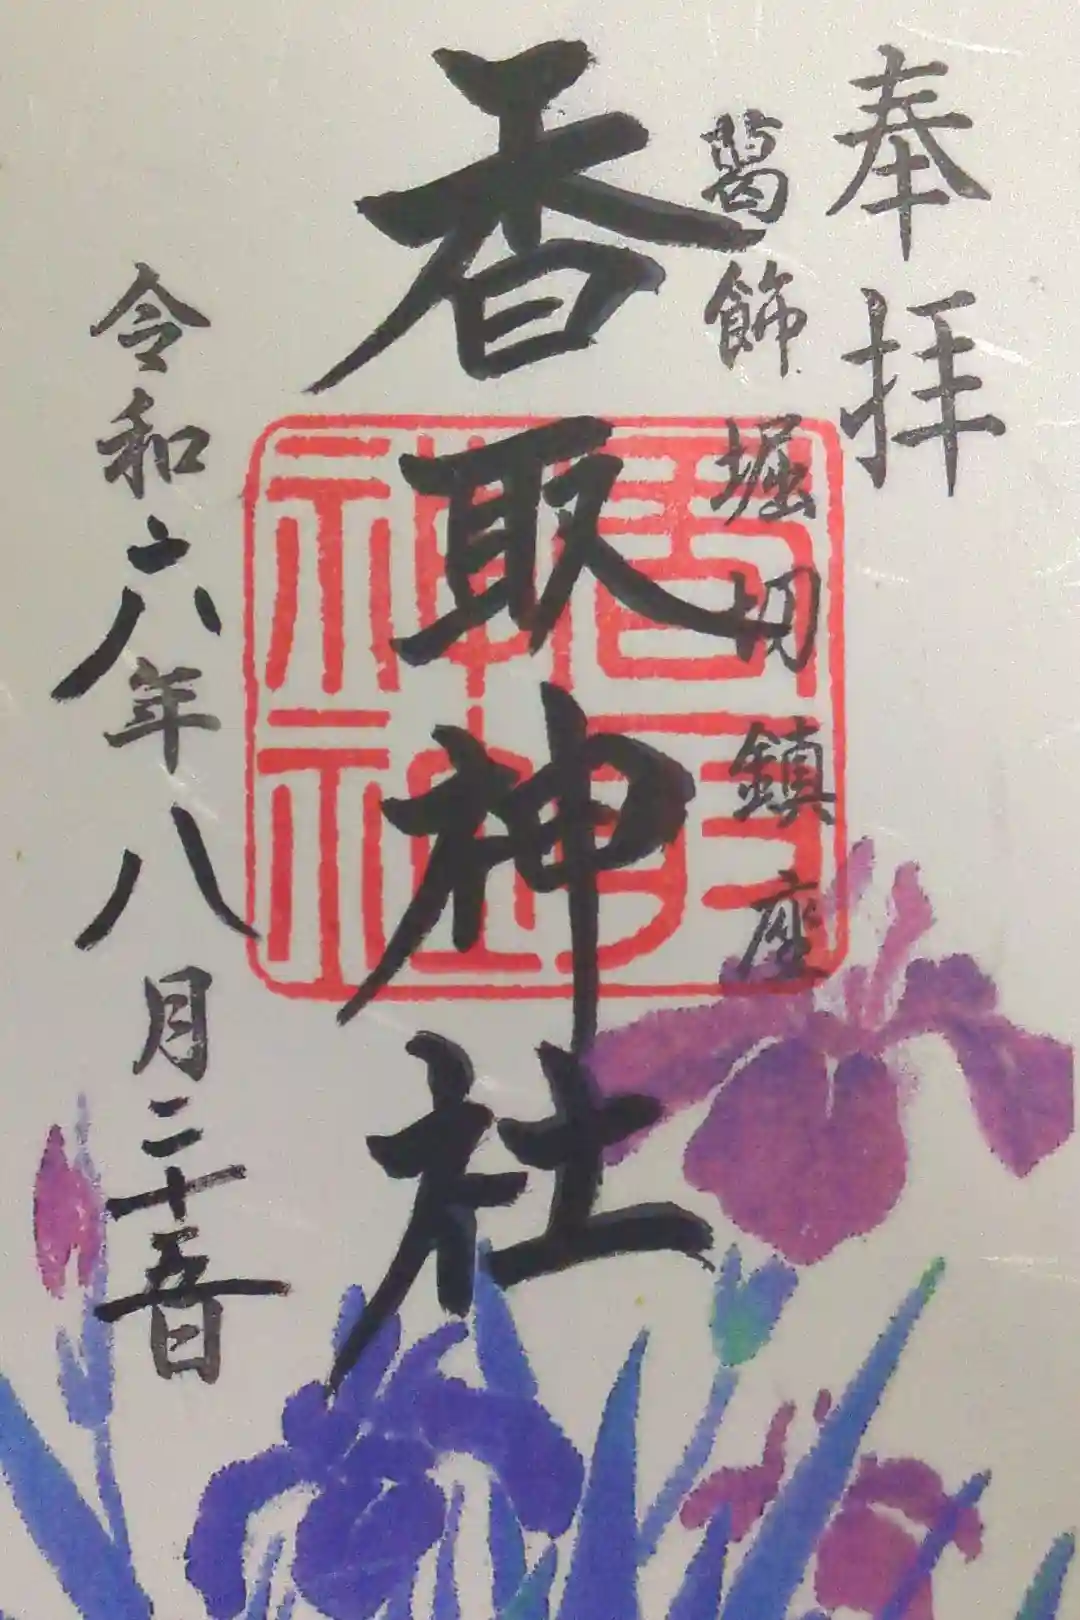 奉拝
葛飾堀切鎮座
香取神社
香取神社
令和六年八月二十五日